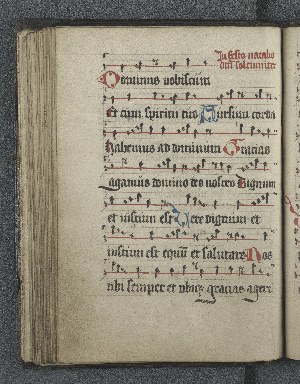 In festo natalis
Dominus vobiscum
Et cum spiritu tuo Sursum corda
Habemus ad dominum Gracias
agamus domino deo nostro Dignum
et iustum est Vere dignum et
iustum est equū et salutare Nos
tibi semper et ubiqꝫ gracias agere